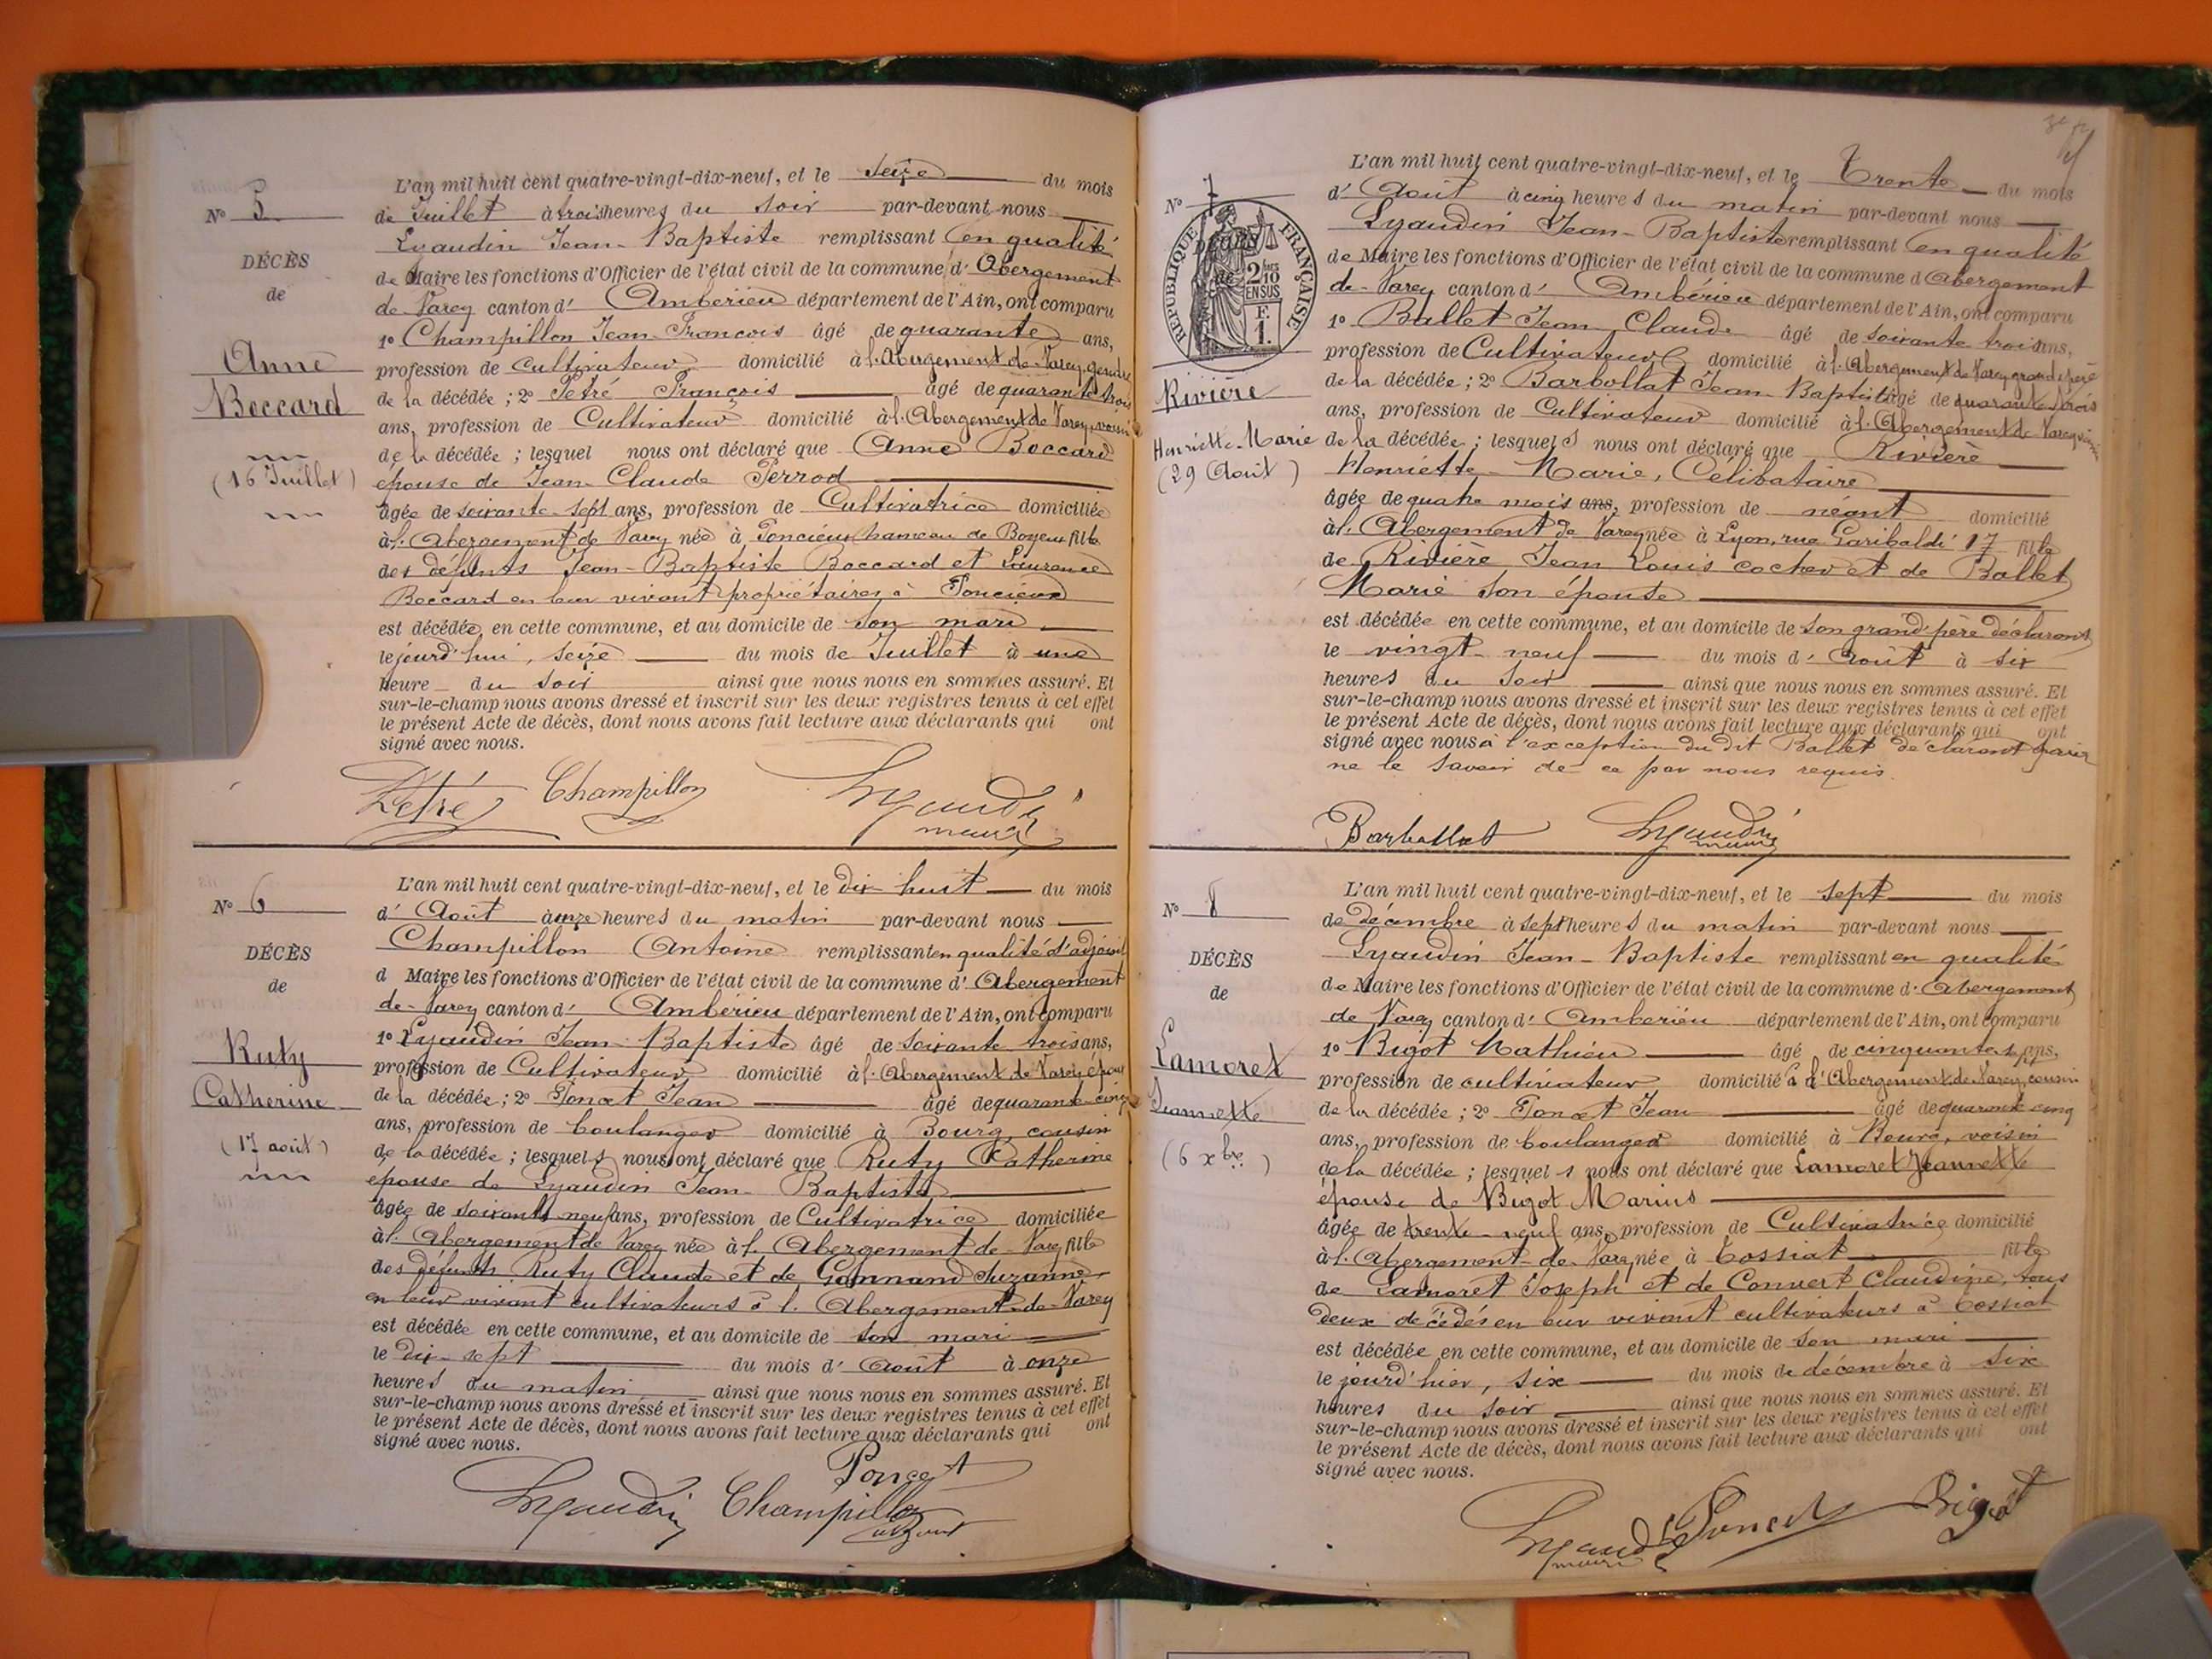 N° 5
DÉCÈS
de
Anne
Boccard
(16 Juillet)
L'an mil huit cent quatre-vingt-dix-neuf, et le seize du mois
de Juillet à trois heures du soir par-devant nous
Lyaudin Jean-Baptiste remplissant en qualité
de Maire les fonctions d'Officier de l'état civil de la commune d'Abergement
de Varey canton d'Ambérieu département de l'Ain, ont comparu
1° Champillon Jean-François âgé de quarante ans,
profession de cultivateur domicilié à l'Abergement de Varey, gendre
de la décédée ; 2° Pétré François âgé de quarante trois
ans, profession de Cultivateur domicilié à l'Abergement de Varey, voisin
de la décédée ; lesquel nous ont déclaré que Anne Boccard
épouse de Jean-Claude Perrod
âgée de soixante-sept ans, profession de Cultivatrice domiciliée
à l'Abergement de Varey née à Poncieux hameau de Boyeux fille
des défunts Jean-Baptiste Boccard et Laurence
Boccard en leur vivant propriétaires à Poncieux
est décédée, en cette commune, et au domicile de son mari
le jourd'hui, seize du mois de Juillet à une
heure du soir ainsi que nous nous en sommes assuré. Et
sur-le-champ nous avons dressé et inscrit sur les deux registres tenus à cet effet
le présent Acte de décès, dont nous avons fait lecture aux déclarants qui ont
signé avec nous.
Pétré Champillon Lyaudin
maire
N° 6
DÉCÈS
de
Ruty
Catherine
(17 août)
L'an mil huit cent quatre-vingt-dix-neuf, et le dix huit du mois
d'Août à onze heures du matin par-devant nous
Champillon Antoine remplissant en qualité d'adjoint
d Maire les fonctions d'Officier de l'état civil de la commune d'Abergement
de-Varey canton d'Ambérieu département de l'Ain, ont comparu
1° Lyaudin Jean-Baptiste âgé de soixante trois ans,
profession de Cultivateur domicilié à l'Abergement de Varey époux
de la décédée ; 2° Poncet Jean âgé de quarante-cinq
ans, profession de boulanger domicilié à Bourg, cousin
de la décédée ; lesquels nous ont déclaré que Ruty Catherine
épouse de Lyaudin Jean-Baptiste
âgée de soixante neuf ans, profession de Cultivatrice domiciliée
à l'Abergement de Varey née à l'Abergement de Varey fille
des défunts Ruty Claude et de Gonnand Suzanne
en leur vivant cultivateurs à l'Abergement-de-Varey
est décédée en cette commune, et au domicile de son mari
le dix-sept du mois d'Août à onze
heures du matin ainsi que nous nous en sommes assuré. Et
sur-le-champ nous avons dressé et inscrit sur les deux registres tenus à cet effet
le présent Acte de décès, dont nous avons fait lecture aux déclarants qui ont
signé avec nous.
Poncet
Lyaudin Champillon
adjoint
N° 7
RÉPUBLIQUE FRANÇAISE
2/10
EN SUS
F.
1.
Rivière
Henriette-Marie
(29 Août)
L'an mil huit cent quatre-vingt-dix-neuf, et le Trente du mois
d'Août à cinq heures du matin par-devant nous
Lyaudin Jean-Baptiste remplissant en qualité
de Maire les fonctions d'Officier de l'état civil de la commune d'Abergement
de-Varey canton d'Ambérieu département de l'Ain, ont comparu
1° Ballet Jean Claude âgé de soixante trois ans,
profession de Cultivateur domicilié à l'Abergement de Varey grand'père
de la décédée ; 2° Barbollat Jean-Baptiste âgé de quarante trois
ans, profession de Cultivateur domicilié à l'Abergement de Varey voisin
de la décédée ; lesquels nous ont déclaré que Rivière
Henriette-Marie, Célibataire
âgée de quatre mois ans, profession de néant domicilié
à l'Abergement de Varey née à Lyon, rue Garibaldi 17 fille
de Rivière Jean Louis cocher et de Ballet
Marie son épouse
est décédée en cette commune, et au domicile de son grand'père déclarant
le vingt-neuf du mois d'Août à six
heures du soir ainsi que nous nous en sommes assuré. Et
sur-le-champ nous avons dressé et inscrit sur les deux registres tenus à cet effet
le présent Acte de décès, dont nous avons fait lecture aux déclarants qui ont
signé avec nous à l'exception du dit Ballet déclarant
ne le savoir de ce par nous requis.
Barbollat Lyaudin
maire
N° 8
DÉCÈS
de
Lamoret
Jeannette
(6 xbre)
L'an mil huit cent quatre-vingt-dix-neuf, et le sept du mois
de décembre à sept heures du matin par-devant nous
Lyaudin Jean-Baptiste remplissant en qualité
de Maire les fonctions d'Officier de l'état civil de la commune d'Abergement
de Varey canton d'Ambérieu département de l'Ain, ont comparu
1° Bigot Mathieu âgé de cinquante sept ans,
profession de cultivateur domicilié à l'Abergement de Varey, cousin
de la décédée ; 2° Poncet Jean âgé de quarante cinq
ans, profession de boulanger domicilié à Bourg, voisin
de la décédée ; lesquels nous ont déclaré que Lamoret Jeannette
épouse de Bigot Marius
âgée de trente-neuf ans, profession de Cultivatrice domicilié
à l'Abergement-de-Varey née à Tossiat fille
de Lamoret Joseph et de Convert Claudine, tous
deux décédés en leur vivant cultivateurs à Tossiat
est décédée en cette commune, et au domicile de son mari
le jourd'hier, six du mois de décembre à six
heures du soir ainsi que nous nous en sommes assuré. Et
sur-le-champ nous avons dressé et inscrit sur les deux registres tenus à cet effet
le présent Acte de décès, dont nous avons fait lecture aux déclarants qui ont
signé avec nous.
Lyaudin Poncet Bigot
maire